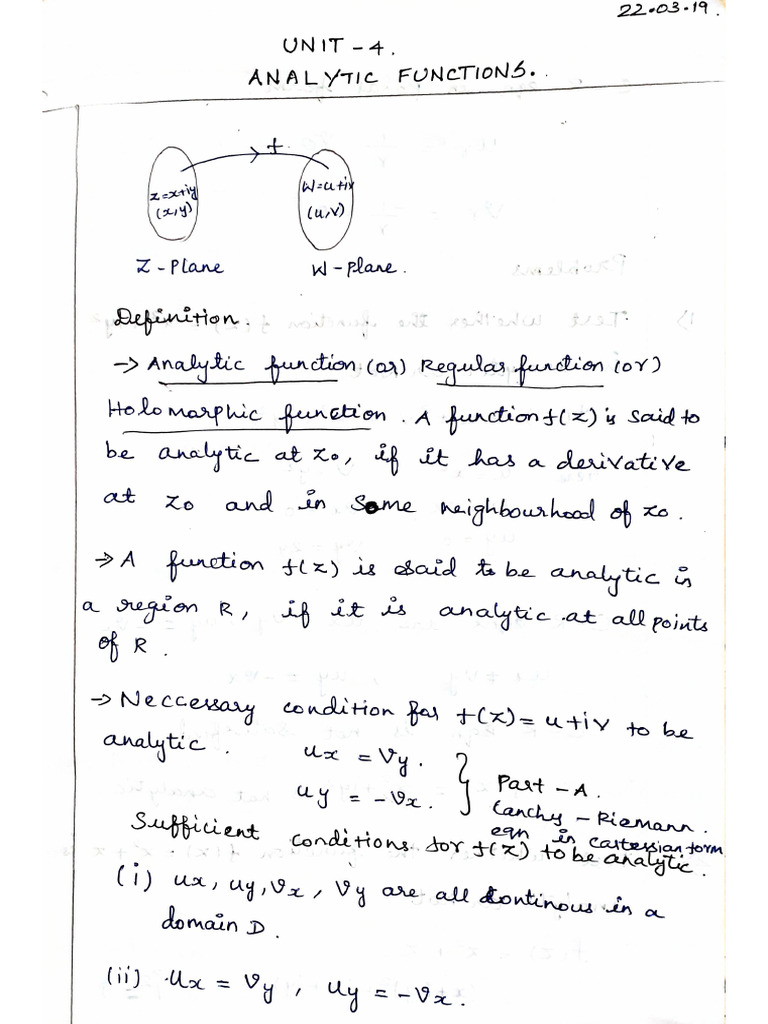 22.03.19.
UNIT - 4.
ANALYTIC FUNCTIONS.
f
z=x+iy
(x,y)
W=u+iv
(u,v)
Z-Plane
W-plane.
Definition.
→ Analytic function (or) Regular function (or)
Holomorphic function. A function f(z) is said to
be analytic at z0, if it has a derivative
at z0 and in some neighbourhood of z0.
→ A function f(z) is said to be analytic in
a region R, if it is analytic at all points
of R.
→ Neccessary condition for f(z)=u+iv to be
analytic.
ux = vy.
uy = -vx.
Part - A.
Cauchy - Riemann.
eqn in cartessian form
Sufficient conditions for f(z) to be analytic.
(i) ux, uy, vx, vy are all continous in a
domain D.
(ii) ux = vy, uy = -vx.